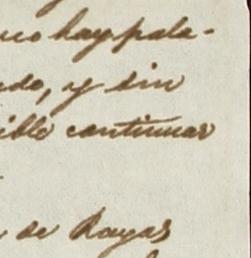 no hay pala-
ado, y sin
ible continuar
de Rayas